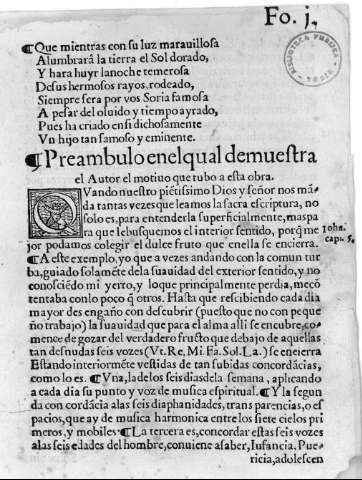 Fo. j.
¶Que mientras con su luz marauillosa
Alumbrarâ la tierra el Sol dorado,
Y hara huyr la noche temerosa
De sus hermosos rayos, rodeado,
Siempre sera por vos Soria famosa
A pesar del oluido y tiempo ayrado,
Pues ha criado en si dichosamente
Vn hijo tan famoso y eminente.
¶Preambulo enel qual demuestra
el Autor el motiuo que tubo a esta obra.
QVando nuestro piētissimo Dios y señor nos mā-
da tantas vezes que leamos la sacra escriptura, no
solo es, para entenderla superficialmente, mas pa
ra que le busquemos el interior sentido, porq̄ me
jor podamos colegir el dulce fruto que enella se encierra.
Iohn.
capi. 5.
¶A este exemplo, yo que a vezes andando con la comun tur
ba, guiado solamēte dela suauidad del exterior sentido, y no
conosciēdo mi yerro, y lo que principalmente perdia, me cō
tentaba con lo poco q̄ otros. Hasta que rescibiendo cada dia
mayor desengaño con descubrir (puesto que no con peque
ño trabajo) la suauidad que para el alma alli se encubre, co-
mence de gozar del verdadero frusto que debajo de aquellas
tan desnudas seis vozes (Vt. Re. Mi. Fa. Sol. La.) se encierra
Estando interiormēte vestidas de tan subidas concordācias,
como lo es. ¶Vna, la delos seis dias dela semana, aplicando
a cada dia su punto y voz de musica espiritual. ¶Y la segun
da con cordācia alas seis diaphanidades, transparencias, o es
pacios, que ay de musica harmonica entre los siete cielos pri
meros, y mobiles ¶La tercera es, concordar estas seis vozes
alas seis edades del hombre, conuiene a saber, Infancia. Pue-
ricia, adolescen